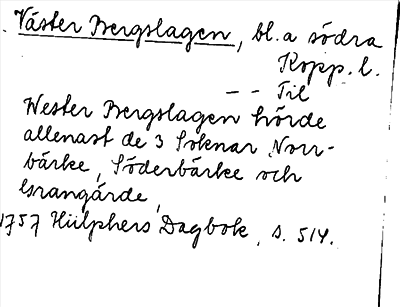 Väster Bergslagen, bl. a södra
Kopp. l.
-- Til
Wester Bergslagen hörde
allenast de 3 Soknar Norr-
bärke, Söderbärke och
Grangärde,
1757 Hülphers Dagbok, s. 514.